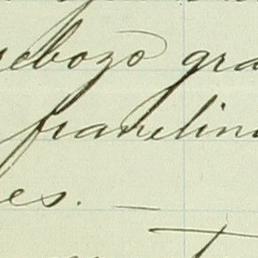 rebozo gra
fravelina
es. —